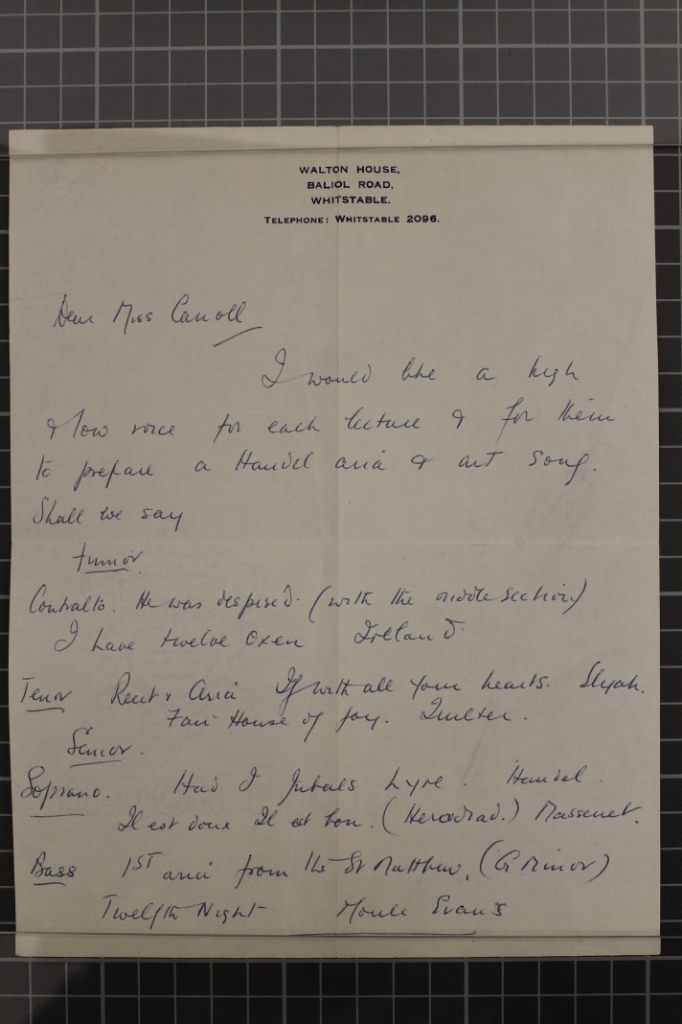 WALTON HOUSE,
BALIOL ROAD,
WHITSTABLE.
TELEPHONE: WHITSTABLE 2096.
Dear Miss Carroll
I would like a high
& low voice for each lecture & for them
to prepare a Handel aria & art song.
Shall we say
Junior.
Contralto. He was despised. (with the middle section)
I have twelve Oxen Ireland
Tenor Recit & Aria If with all your hearts. Elijah.
Fair House of Joy. Quilter.
Senior.
Soprano. Had I Jubals Lyre. Handel.
Il est doux Il est bon. (Herodiad.) Massenet.
Bass 1ST aria from the St Matthew. (G Minor)
Twelfth Night Evans